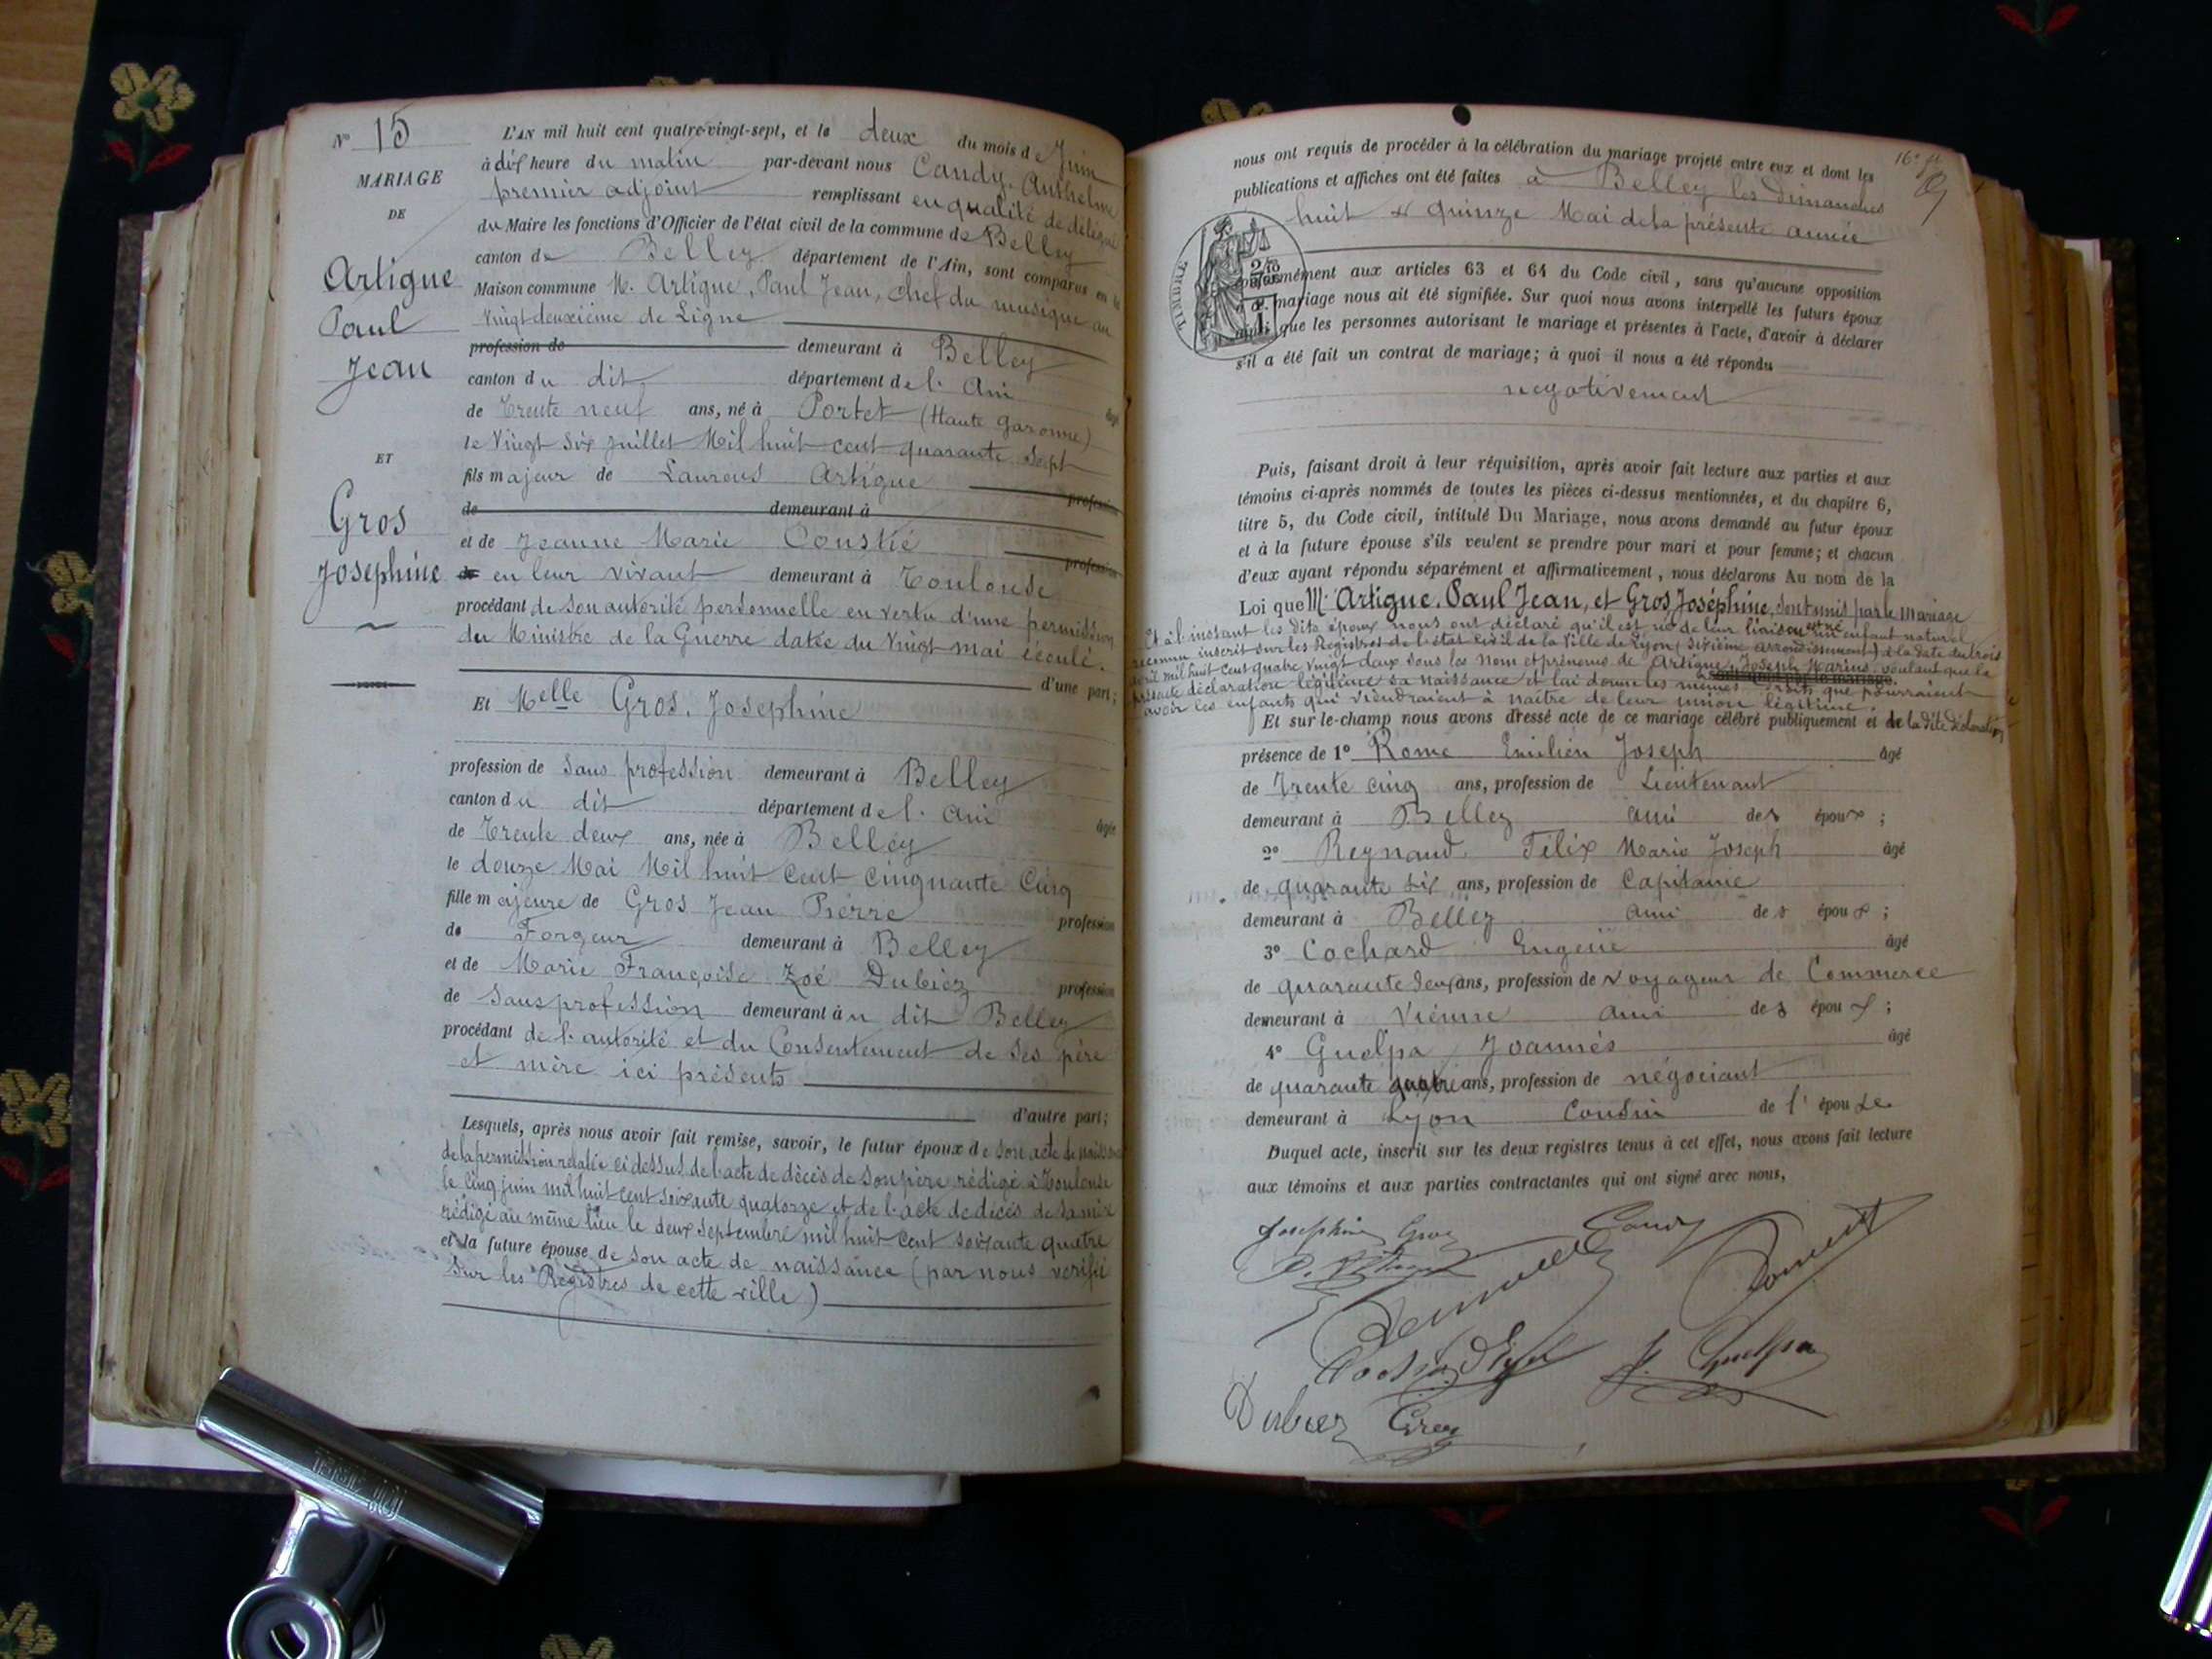 N° 15
MARIAGE
DE
Artigue
Paul
Jean
ET
Gros
Joséphine
L'AN mil huit cent quatre-vingt-sept, et le deux du mois de Juin
à dix heure du matin par-devant nous Candy, Anthelme
premier adjoint remplissant en qualité de délégué
du Maire les fonctions d'Officier de l'état civil de la commune de Belley
canton de Belley département de l'Ain, sont comparus en la
Maison commune M. Artigue, Paul Jean, chef de musique au
Vingt deuxième de Ligne
profession de demeurant à Belley
canton du dit département de l'Ain âgé
de Trente neuf ans, né à Portet (Haute Garonne)
le Vingt six juillet Mil huit cent quarante sept
fils majeur de Laurens Artigue profession
de demeurant à
et de Jeanne Marie Coustié profession
de en leur vivant demeurant à Toulouse
procédant de son autorité personnelle en vertu d'une permission
du Ministre de la Guerre datée du Vingt mai écoulé.
d'une part;
Et Melle Gros, Joséphine
profession de Sans profession demeurant à Belley
canton du dit département de l'Ain âgée
de Trente deux ans, née à Belley
le douze Mai Mil huit cent cinquante cinq
fille majeure de Gros Jean Pierre profession
de Forgeur demeurant à Belley
et de Marie Françoise Zoé Dubiez profession
de Sans profession demeurant au dit Belley
procédant de l'autorité et du Consentement de ses père
et mère ici présents
d'autre part;
Lesquels, après nous avoir fait remise, savoir, le futur époux de son acte de naissance
de la permission relatée ci dessus, de l'acte de décès de son père rédigé à Toulouse
le cinq juin mil huit cent soixante quatorze et de l'acte de décès de sa mère
rédigé au même lieu le deux septembre mil huit cent soixante quatre
et la future épouse de son acte de naissance (par nous vérifié
sur les Registres de cette ville)
16e ft
nous ont requis de procéder à la célébration du mariage projeté entre eux et dont les
publications et affiches ont été faites à Belley les dimanches
huit et quinze Mai de la présente année
TIMBRE
conformément aux articles 63 et 64 du Code civil, sans qu'aucune opposition
audit mariage nous ait été signifiée. Sur quoi nous avons interpellé les futurs époux
ainsi que les personnes autorisant le mariage et présentes à l'acte, d'avoir à déclarer
s'il a été fait un contrat de mariage; à quoi il nous a été répondu
négativement
Puis, faisant droit à leur réquisition, après avoir fait lecture aux parties et aux
témoins ci-après nommés de toutes les pièces ci-dessus mentionnées, et du chapitre 6,
titre 5, du Code civil, intitulé Du Mariage, nous avons demandé au futur époux
et à la future épouse s'ils veulent se prendre pour mari et pour femme; et chacun
d'eux ayant répondu séparément et affirmativement, nous déclarons Au nom de la
Loi que Mr Artigue, Paul Jean, et Gros, Joséphine, sont unis par le mariage
Et à l'instant les dits époux nous ont déclaré qu'il est né de leur liaison un enfant naturel
reconnu inscrit sur les Registres de l'état civil de la Ville de Lyon (sixième arrondissement) à la date du trois
avril mil huit cent quatre vingt deux sous les nom et prénoms de Artigue, Joseph Marius, voulant que la
présente déclaration légitime sa naissance et lui donne les mêmes droits que pourraient
avoir les enfants qui viendraient à naître de leur union légitime.
Et sur-le-champ nous avons dressé acte de ce mariage célébré publiquement et de la dite déclaration
présence de 1° Rome Emilien Joseph âgé
de Trente cinq ans, profession de Lieutenant
demeurant à Belley ami des époux;
2° Reynaud, Félix Marie Joseph âgé
de quarante six ans, profession de Capitaine
demeurant à Belley ami des époux;
3° Cochard Eugène âgé
de quarante deux ans, profession de voyageur de Commerce
demeurant à Vienne ami des époux;
4° Guelpa Joannès âgé
de quarante quatre ans, profession de négociant
demeurant à Lyon Cousin de l'épouse
Duquel acte, inscrit sur les deux registres tenus à cet effet, nous avons fait lecture
aux témoins et aux parties contractantes qui ont signé avec nous,
Joséphine Gros Candy
P. Artigue
J. Guelpa
Dubiez Gros